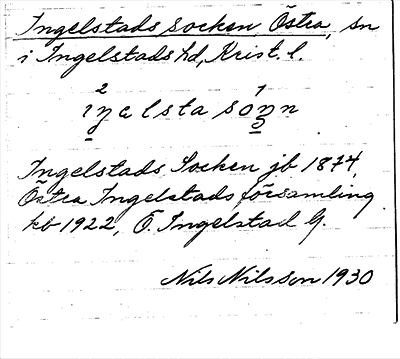 Ingelstads socken, Östra, sn
i Ingelstads hd, Krist. l.
2 1
iŋəlsta soŋn
Ingelstads Socken jb 1874,
Östra Ingelstads församling
kb 1922, Ö. Ingelstad G.
Nils Nilsson 1930